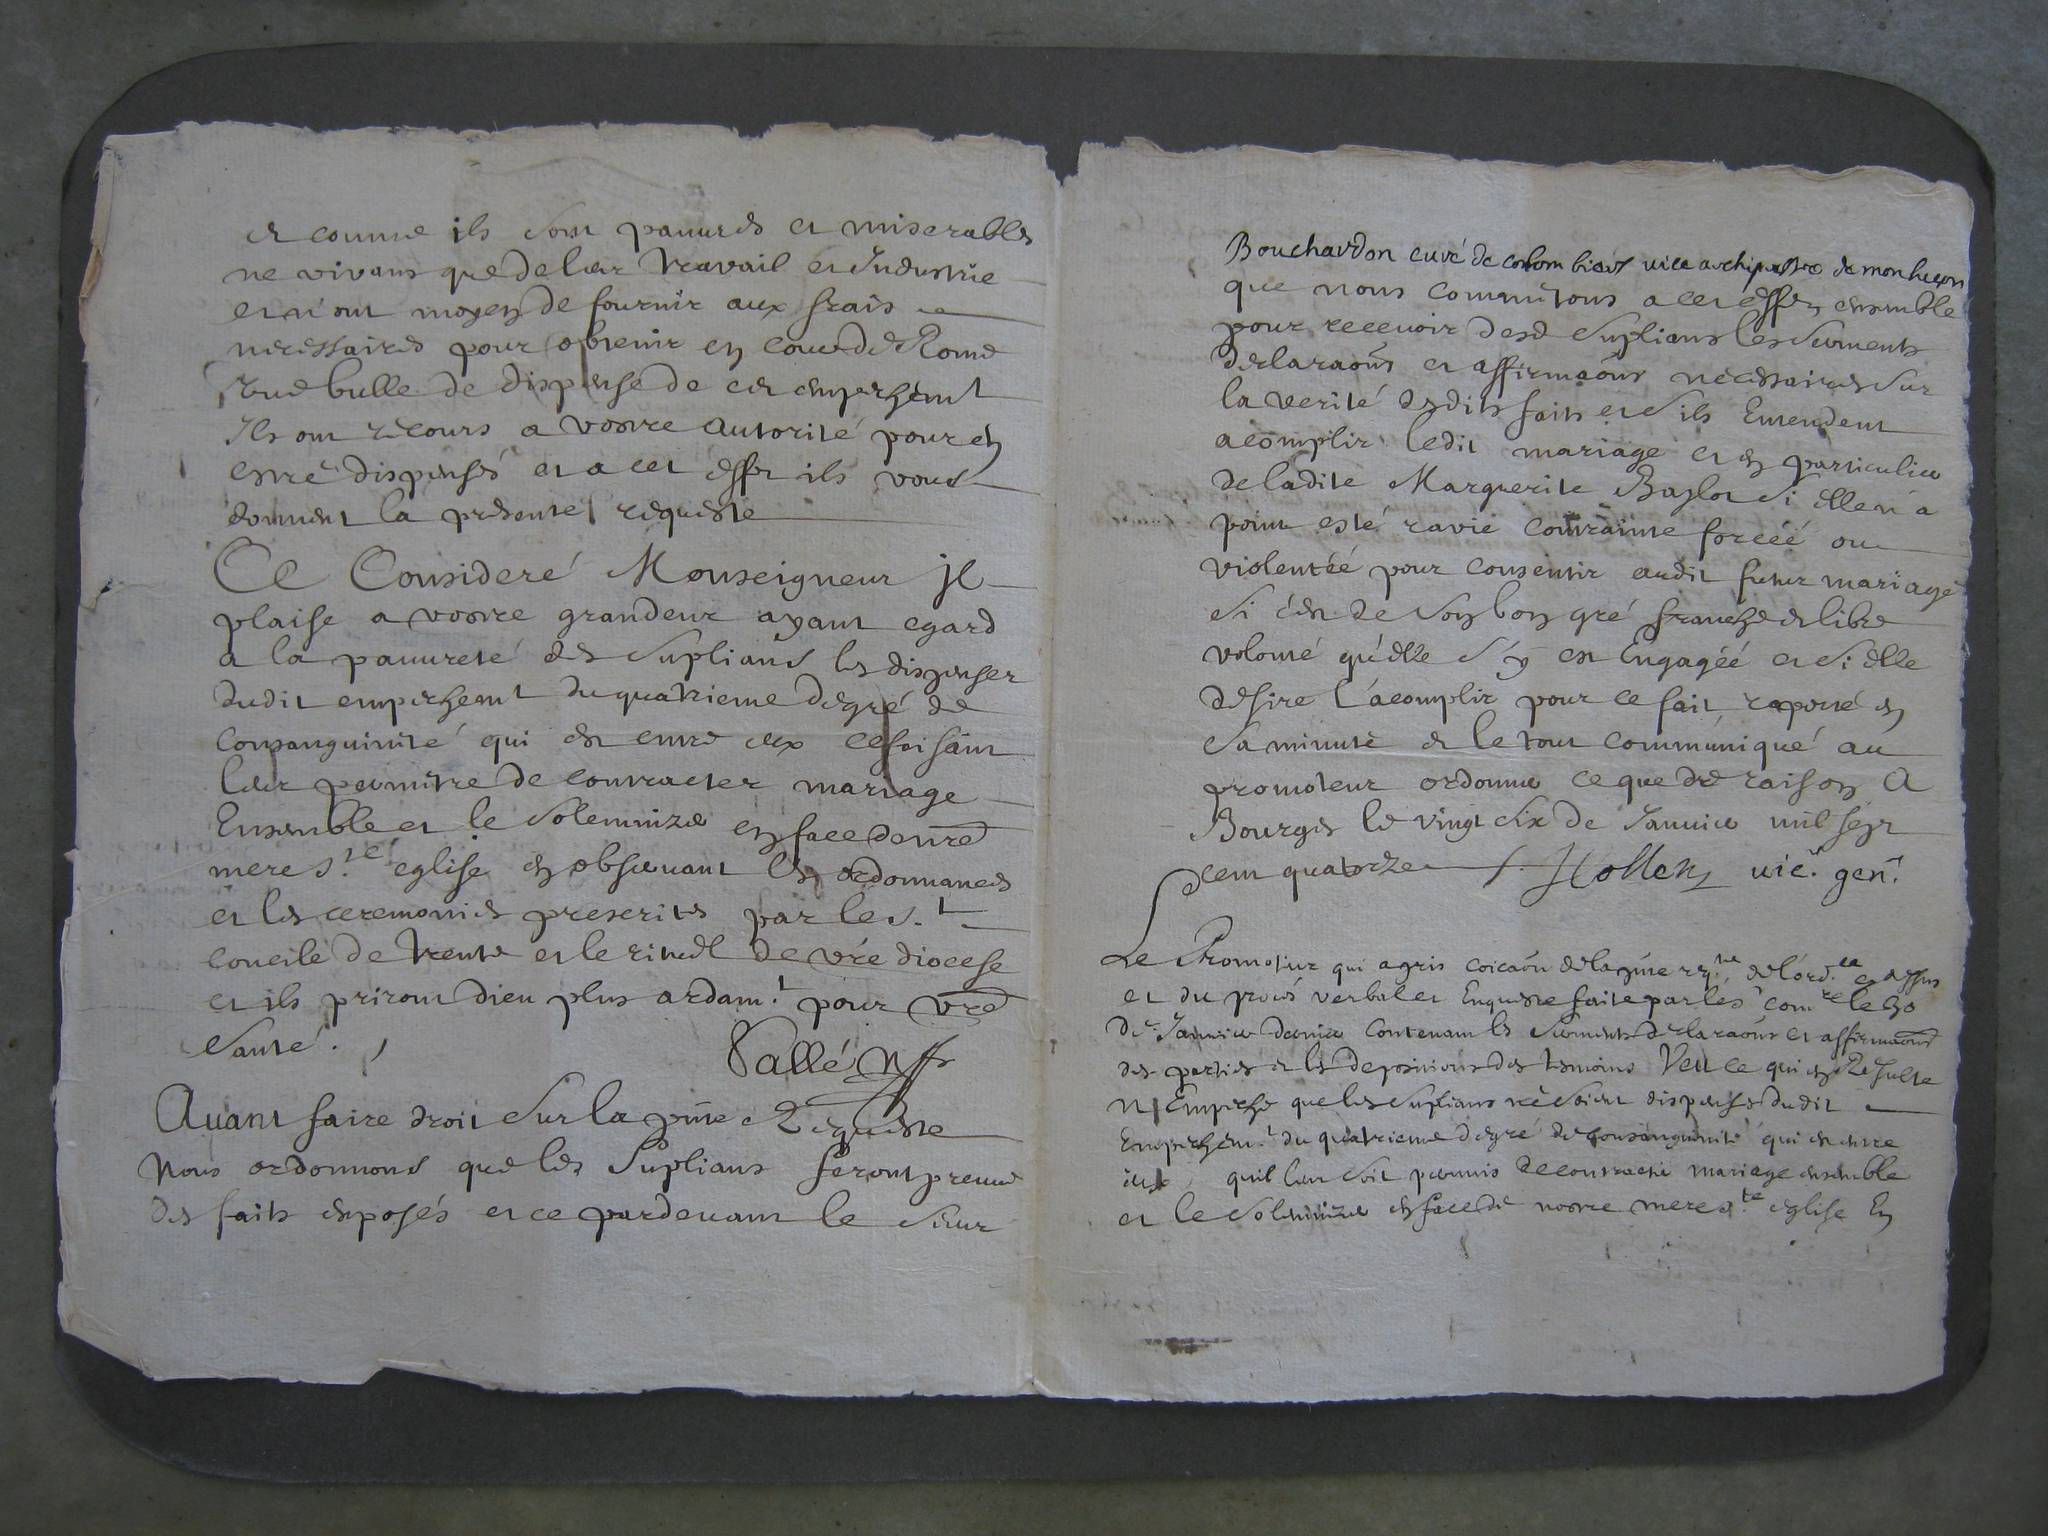 et comme ils sont pauures et miserables
ne vivans que de leur travail et Industrie
et n'ont moyen de fournir aux frais
necessaires pour obtenir en cour de Rome
une bulle de dispense de cet empeschemt
Ils ont recours a vostre autorité pour en
estre dispensés et a cet effet ils vous
donnent la presente requeste
Ce Consideré Monseigneur Il
plaise a vostre grandeur ayant egard
a la pauureté des suplians les dispenser
dudit empeschemt du quatrieme degré de
consanguinité qui est entre eux ce faisant
leur permetre de contracter mariage
Ensemble et le solemnizer en face de nre
mere s.te eglise en obseruant les ordonnances
et les ceremonies prescrites par le s.t
concile de trente et le rituel de vre diocese
et ils priront dieu plus ardam.t pour vre
santé.
Vallé
Auant faire droit sur la pnte Requeste
Nous ordonnons que les Suplians feront preuue
des faits exposés et ce pardeuant le sieur
Bouchardon curé de vice archiprestre de
que nous commetons a cet effet ensemble
pour receuoir desd suplians les serments
declaraons et affirmaons necessaires sur
la verité desdits faits et s'ils Entendent
acomplir ledit mariage et en particulier
de ladite Marguerite Baylot si elle n'a
point esté ravie contrainte forcéé ou
violentéé pour consentir audit futur mariage
si c'est de son bon gré franche et libre
volonté qu'elle s'y est Engagéé et si elle
desire l'acomplir pour ce fait raporté en
sa minute et le tout communiqué au
promoteur ordonner ce que de raison A
Bourges le vingt six de Januier mil sept
cent quatorze vic. gen.
Le Promoteur qui a pris coicaon de la pnte de l'ord.ce
et du procés verbal et Enqueste faite par led com.re le 30
de Januier dernier Contenant les serments declaraons et affirmaons
des parties et les depositions des temoins Veu ce qui en Resulte
N'Empeche que les suplians ne soient dispensés dudit
Empeschem.t du quatrieme degré de consanguinité qui est entre
eux, quil leur soit permis de contracter mariage ensemble
et le solemnizer en face de nostre mere s.te eglise En